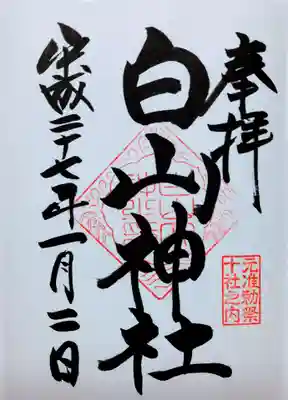 奉拝
元准勅祭
十社之内
白山神社
平成二十七年一月二日